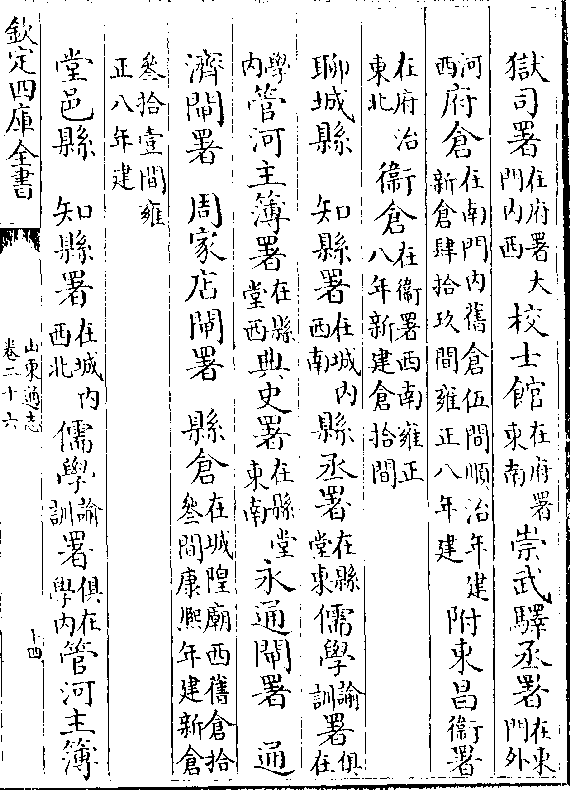 獄司署在府署大門内西校士館在府署東南崇武驛丞署在東門外
河西府倉在南門内舊倉伍間順治年建新倉肆拾玖間雍正八年建附東昌衞署
在府治東北衞倉在衞署西南雍正八年新建倉拾間
聊城縣　知縣署在城内西南縣丞署在縣堂東儒學訓諭署俱在
學内管河主簿署在縣堂西典史署在縣堂東南永通閘署　通
濟閘署　周家店閘署　縣倉在城隍廟西舊倉拾叄間康熙年建新倉
叄拾壹間雍正八年建
堂邑縣　知縣署在城内西北儒學訓諭署俱在學内管河主簿
欽定四庫全書
山東通志
卷二十六
十四